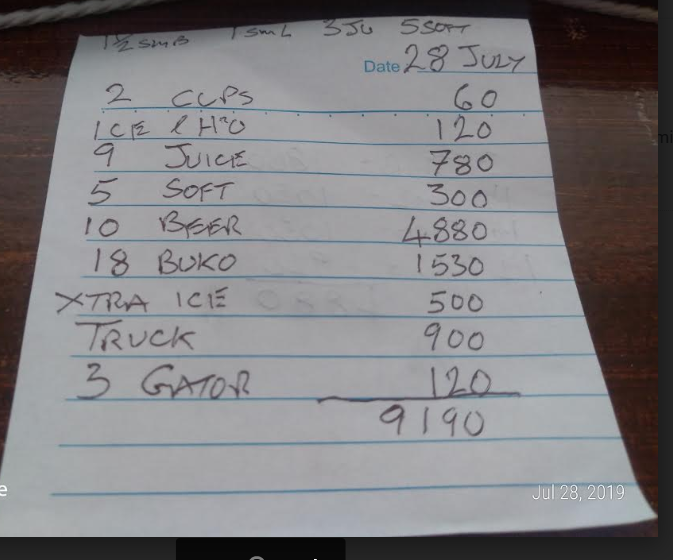 1½ SMB 1 SmL 3 JU 5 SOFT
Date 28 JULY
2 CUPS 60
ICE & H²O 120
9 JUICE 780
5 SOFT 300
10 BEER 4880
18 BUKO 1530
XTRA ICE 500
TRUCK 900
3 GATOR 120
9190
Jul 28, 2019